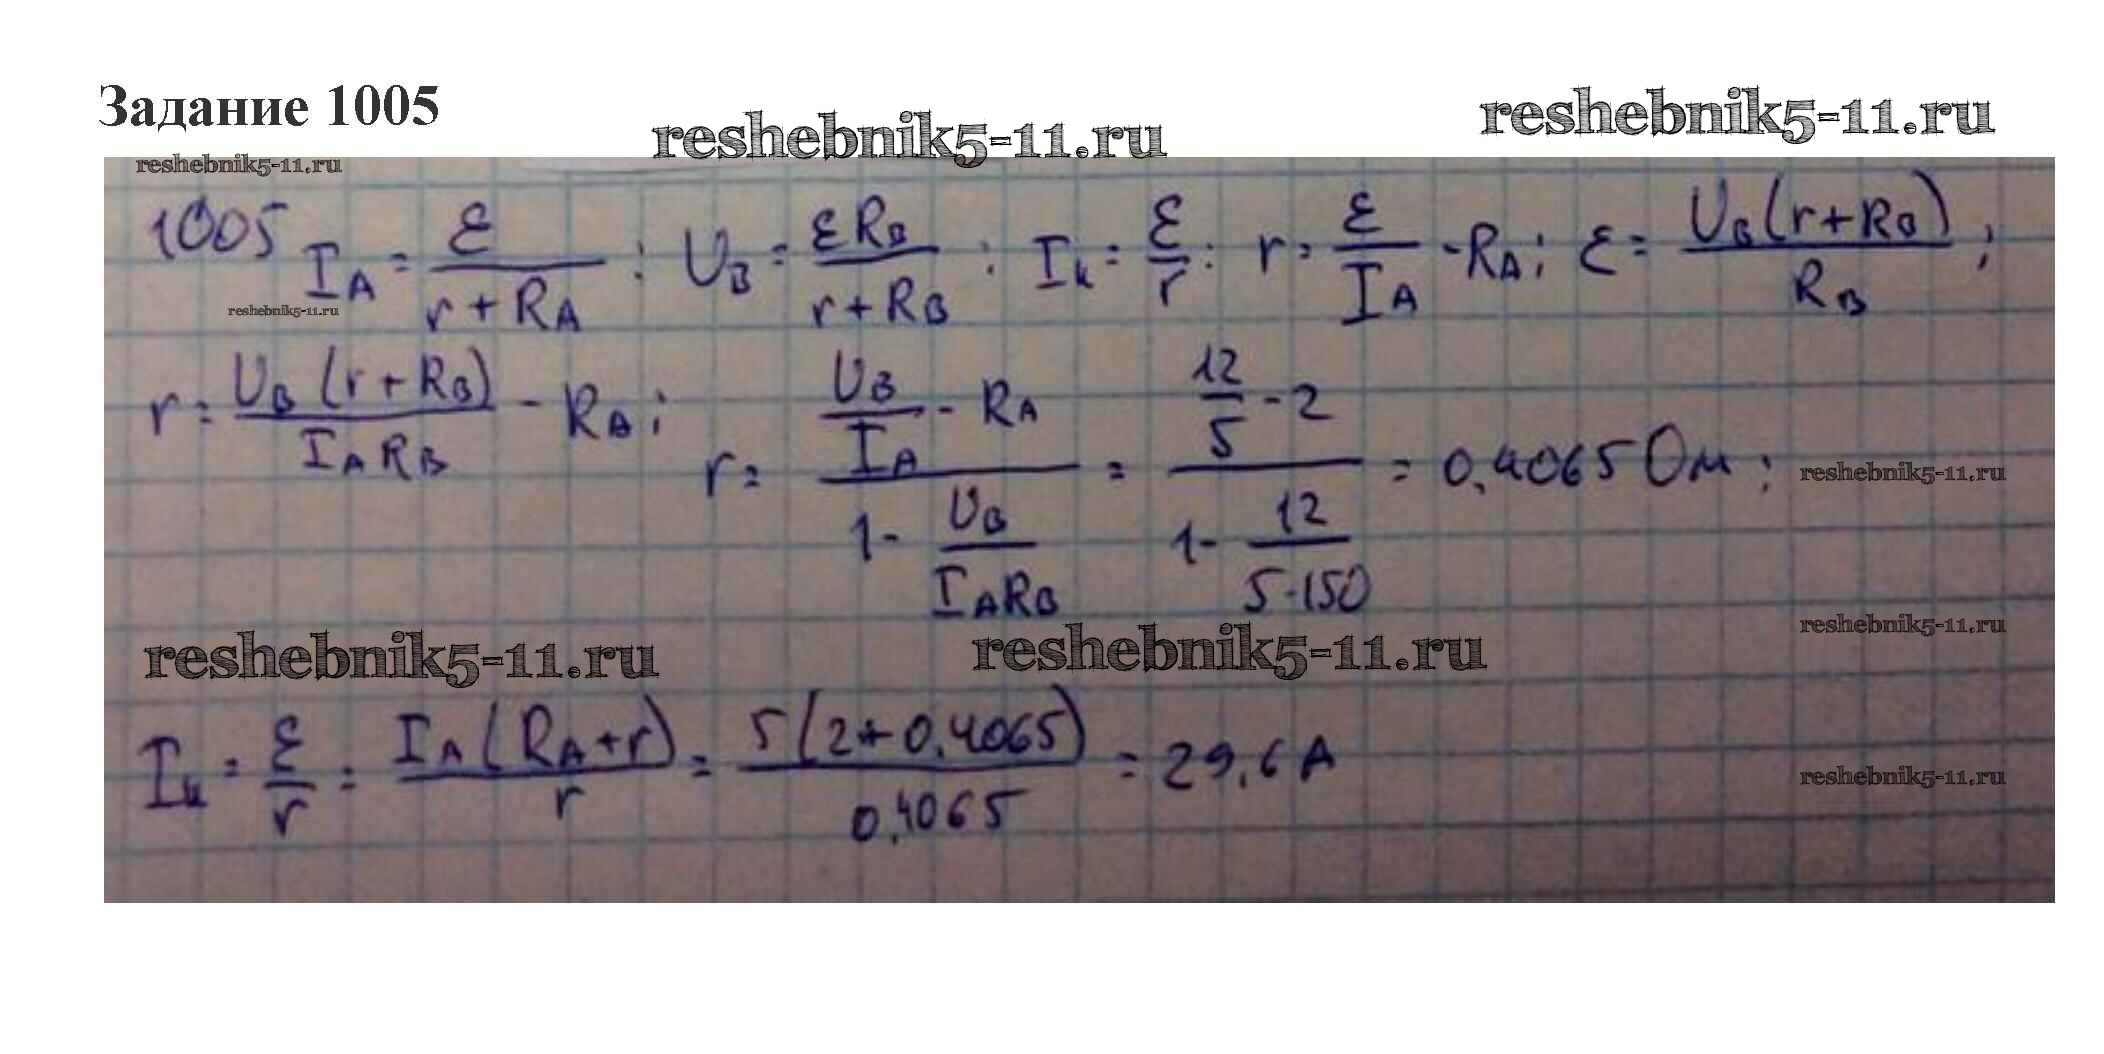 Задание 1005
reshebnik5-11.ru
reshebnik5-11.ru
reshebnik5-11.ru
1005 I_A = ε / (r + R_A) ; U_B = εR_B / (r + R_B) ; I_к = ε / r ; r = ε / I_A - R_A ; ε = U_B (r + R_B) / R_B ;
reshebnik5-11.ru
r = U_B (r + R_B) / (I_A R_B) - R_A ; r = (U_B / I_A - R_A) / (1 - U_B / (I_A R_B)) = (12/5 - 2) / (1 - 12 / (5·150)) = 0,4065 Ом ;
reshebnik5-11.ru
reshebnik5-11.ru
reshebnik5-11.ru
reshebnik5-11.ru
I_к = ε / r = I_A (R_A + r) / r = 5 (2 + 0,4065) / 0,4065 = 29,6 A
reshebnik5-11.ru